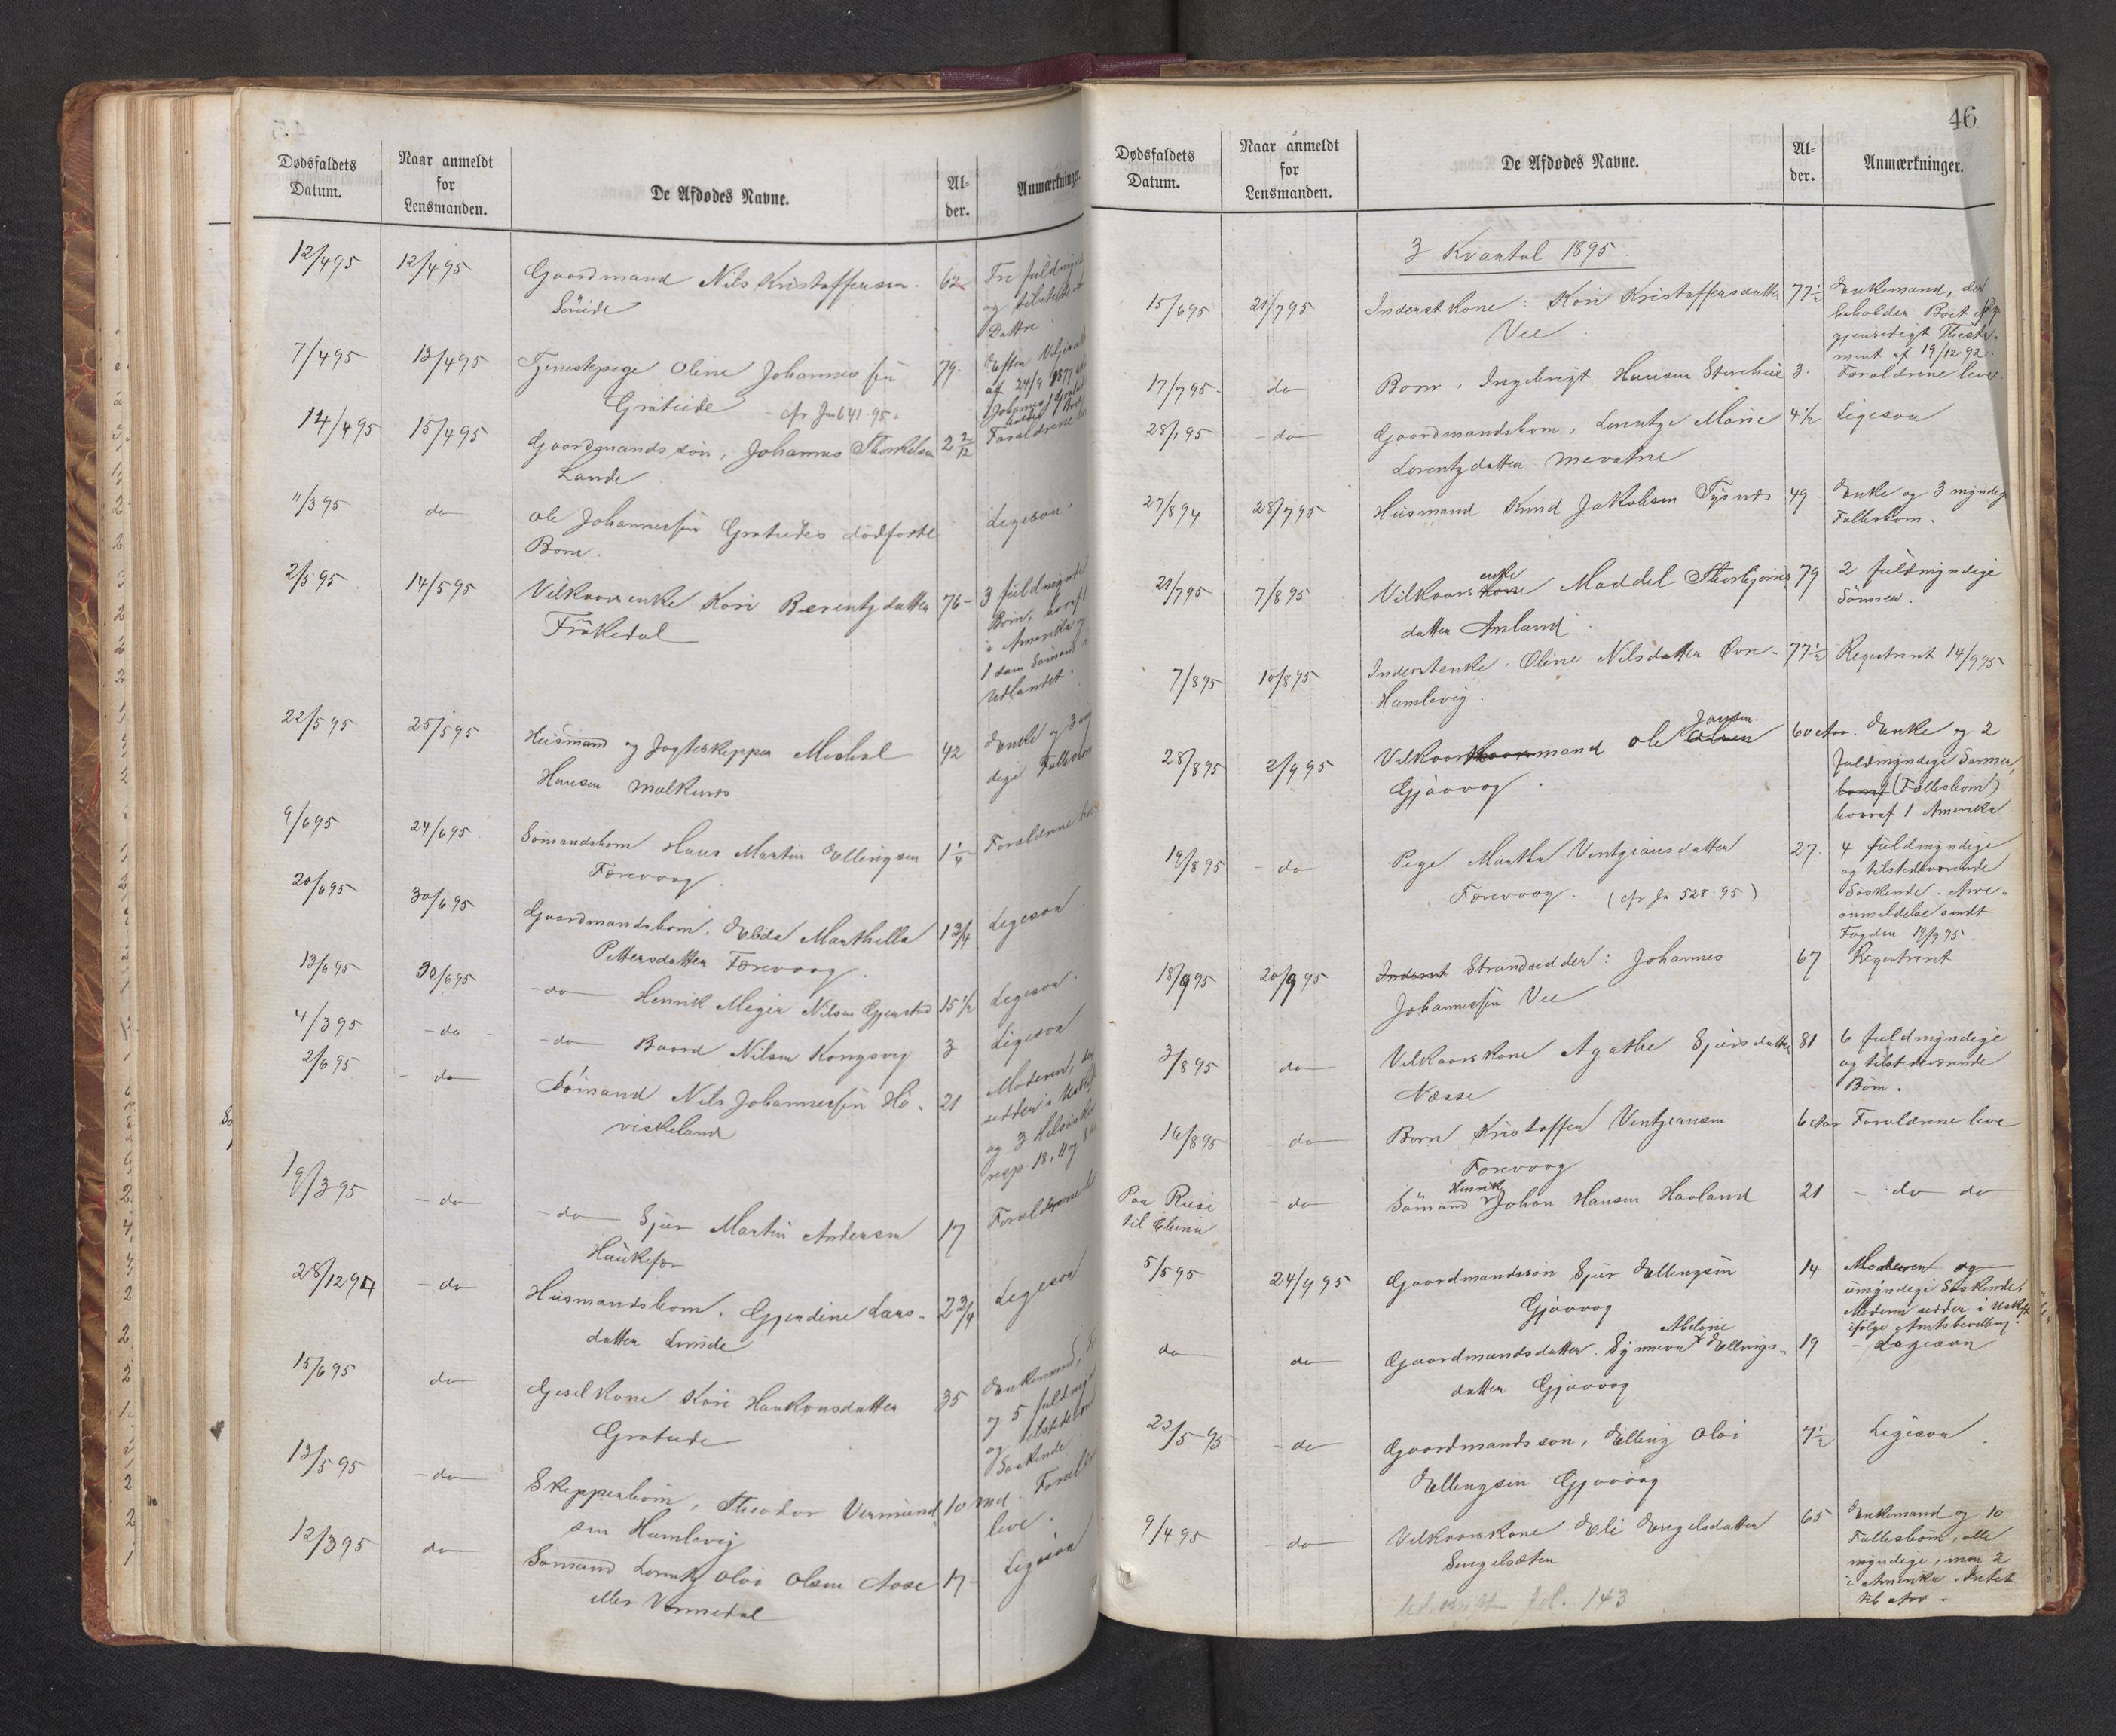 Dødsfaldets Datum.
Naar anmeldt for Lensmanden.
De Afdødes Navne.
Al- der.
Anmærkninger.
12/4 95 12/4 95 Gaardmand Nils Kristoffersen 62 Tre fuldmyn
Søreide og tilstede
Døttre
7/4 95 13/4 95 Tjenestepige Oline Johannes 79. Efter
Grateide - cfr Jn 641-95. af 24/9 1877
14/4 95 15/4 95 Gaardmands søn, Johannes Thorkelsen 2 2/12 Forældrene
Lande
11/3 95 do Ole Johannessen Grateides dødfødte Ligesaa.
Barn.
2/5 95 14/5 95 Vilkaarsenke Kari Berentsdatter 76- 3 fuldmyndi
Frøkedal Børn, hvoraf
i Amerika og
1 som Sømand i
Udlandet.
22/5 95 25/5 95 Husmand og Jagteskipper Mickal 42 Enke og 3
Hansen Malkenes dige Fællesbørn
9/6 95 24/6 95 Sømandsbarn Hans Martin Ellingsen 1 1/4 Forældrene
Færevaag.
20/6 95 30/6 95 Gaardmandsbarn. Elida Marthella 1 3/4 Ligesaa.
Pettersdatter Færevaag.
13/6 95 30/6 95 - do - Henrik Meyer Nilsen Gjerstad 15 1/2 Ligesaa.
4/3 95 - do - - do - Baard Nilsen Kongsvig 3 Ligesaa
2/6 95 - do Sømand Nils Johannessen Hø- 21 Moderen,
viskeland sidder i Uskift
og 3 Helsøsk
resp. 18, 11 og 8
19/3 95 - do - do - Sjur Martin Andersen 17 Forældrene
Haukefær
28/12 94 - do Husmandsbarn. Gjendine Lars- 2 3/4 Ligesaa
datter Lunde
15/6 95 do Gjestkone Kari Haakonsdatter 35 Enkemand,
Grateide og 5 fuldmyn
og tilstede
Søskende
13/5 95 - do Skipperbarn, Theodor Vermund- 10 Md. Foræld
sen Hamlevig leve.
12/3 95 do Sømand Lorentz Olai Olsen Aase 17- Ligesaa
eller Vermedal
46
Dødsfaldets Datum.
Naar anmeldt for Lensmanden.
De Afdødes Navne.
Al- der.
Anmærkninger.
3 Kvartal 1895.
15/6 95 21/7 95 Inderst kone: Kari Kristoffersdatter 77 1/2 Enkemand, der
Vee beholder Boet iflg.
gjensidigt Thesta-
ment af 19/12 92.
17/7 95. do Barn, Ingebrigt Hansen Storehei 3. Forældrene leve
28/1 95 - do Gaardmandsbarn, Lorentze Marie 4 1/2 Ligesaa
Lorentzdatter Mevatne
27/8 94 28/7 95 Husmand Knud Jakobsen Tysnes 49 - Enke og 3 myndig
Fællesbørn.
enke
21/7 95 7/8 95 Vilkaars kone Maddel Thorbjørns 79 2 fuldmyndige
datter Amland Sønner.
7/8 95 10/8 95 Inderstenke. Oline Nilsdatter Øvre- 77 1/2 Registreret 14/9 95
Hamlevig.
Jansen.
28/8 95 2/9 95 Vilkaarsmand Ole Olsen 60 Aar. Enke og 2
Gjøvaag. fuldmyndige Sønner,
(Fællesbørn)
hvoraf 1 Amerika
19/8 95 - do Pige Martha Ventzeiansdatter 27. 4 fuldmyndige
Færevaag. (cfr Jn 528-95) og tilstedeværende
Søskende. Arve-
anmeldelse sendt
Fogden 19/9 95.
18/9 95 20/9 95 Inderst Strandsidder: Johannes 67 Registreret
Johannessen Vee
3/8 95 do Vilkaarskone Agathe Sjursdatter 81 6 fuldmyndige
Næsse og tilstedeværende
Børn.
16/8 95 do Barn Kristoffer Ventzeiansen 6 Aar Forældrene leve
Færevaag
Henrik
Paa Reise - do Sømand Johan Hansen Haaland 21 - do do
til China
5/5 95 24/9 95 Gaardmandssøn Sjur Ellingsen 14 Moderen og
Gjøvaag umyndige Søskende.
Moderen sidder i Uskifte
ifølge Amtsbevilling.
Abelone
do do Gaardmandsdatter. Synneva Ellings- 19 - Ligesaa
datter Gjøvaag
22/5 95 - do Gaardmandssøn, Elling Olai 7 1/2 Ligesaa
Ellingsen Gjøvaag
9/4 95 - do Vilkaarskone Eli Engelsdatter 65 Enkemand og 10
Sengelsæter Fællesbørn, alle
myndige, men 2
i Amerika. Intet
til Arv.
fol. 143